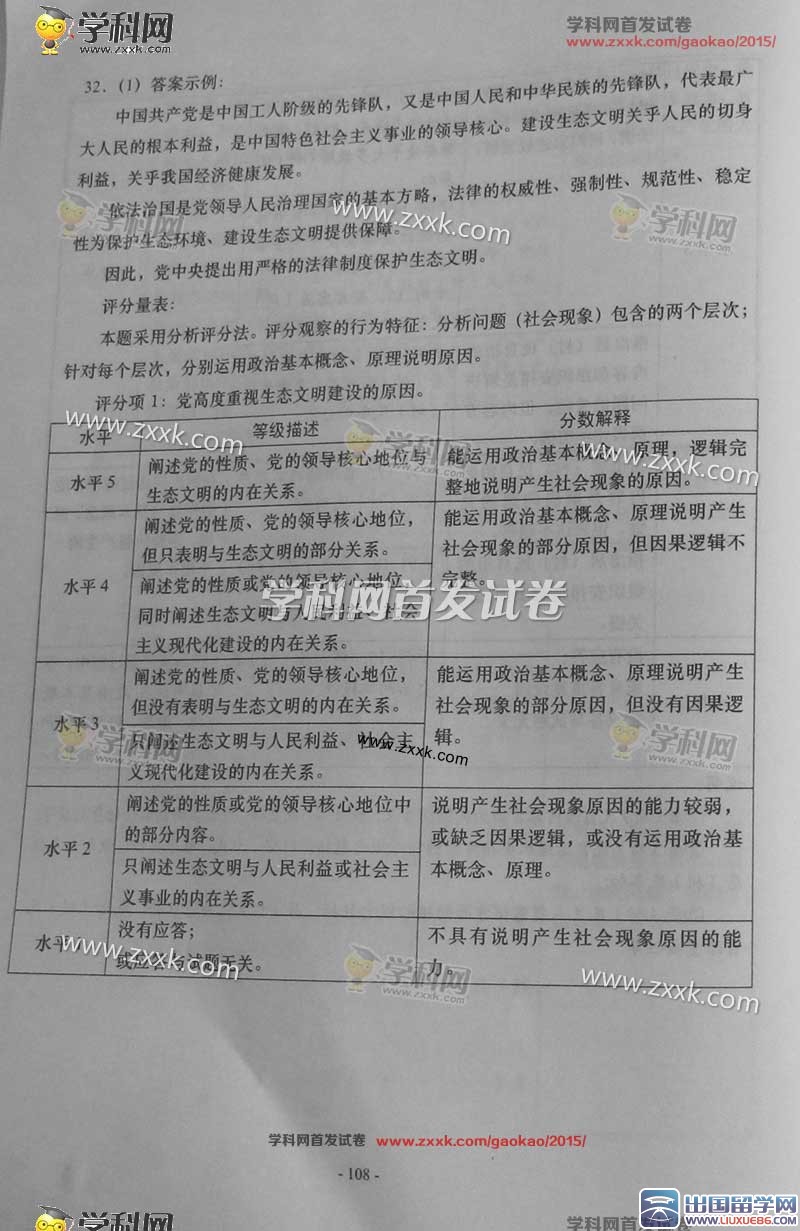 学科网
www.zxxk.com
学科网首发试卷
www.zxxk.com/gaokao/2015/
32.（1）答案示例：
中国共产党是中国工人阶级的先锋队，又是中国人民和中华民族的先锋队，代表最广
大人民的根本利益，是中国特色社会主义事业的领导核心。建设生态文明关乎人民的切身
利益，关乎我国经济健康发展。
依法治国是党领导人民治理国家的基本方略，法律的权威性、强制性、规范性、稳定
性为保护生态环境、建设生态文明提供保障。
学科网
www.zxxk.com
www.zxxk.com
学科网
www.zxxk.com
因此，党中央提出用严格的法律制度保护生态文明。
评分量表：
本题采用分析评分法。评分观察的行为特征：分析问题（社会现象）包含的两个层次；
针对每个层次，分别运用政治基本概念、原理说明原因。
评分项 1：党高度重视生态文明建设的原因。
www.zxxk.com
学科网
www.zxxk.com
www.zxxk.com
水平
等级描述
分数解释
水平 5
阐述党的性质、党的领导核心地位与
生态文明的内在关系。
能运用政治基本概念、原理，逻辑完
整地说明产生社会现象的原因。
水平 4
阐述党的性质、党的领导核心地位，
但只表明与生态文明的部分关系。
阐述党的性质或党的领导核心地位，
同时阐述生态文明与人民利益、社会
主义现代化建设的内在关系。
能运用政治基本概念、原理说明产生
社会现象的部分原因，但因果逻辑不
完整。
学科网首发试卷
水平 3
阐述党的性质、党的领导核心地位，
但没有表明与生态文明的内在关系。
只阐述生态文明与人民利益、社会主
义现代化建设的内在关系。
能运用政治基本概念、原理说明产生
社会现象的部分原因，但没有因果逻
辑。
学科网
www.zxxk.com
www.zxxk.com
学科网
www.zxxk.com
水平 2
阐述党的性质或党的领导核心地位中
的部分内容。
只阐述生态文明与人民利益或社会主
义事业的内在关系。
说明产生社会现象原因的能力较弱，
或缺乏因果逻辑，或没有运用政治基
本概念、原理。
水平
没有应答；
或应答与试题无关。
不具有说明产生社会现象原因的能
力。
www.zxxk.com
学科网
www.zxxk.com
www.zxxk.com
学科网首发试卷 www.zxxk.com/gaokao/2015/
- 108 -
学科网
学科网首发试卷
出国留学网
WWW.LIUXUE86.COM